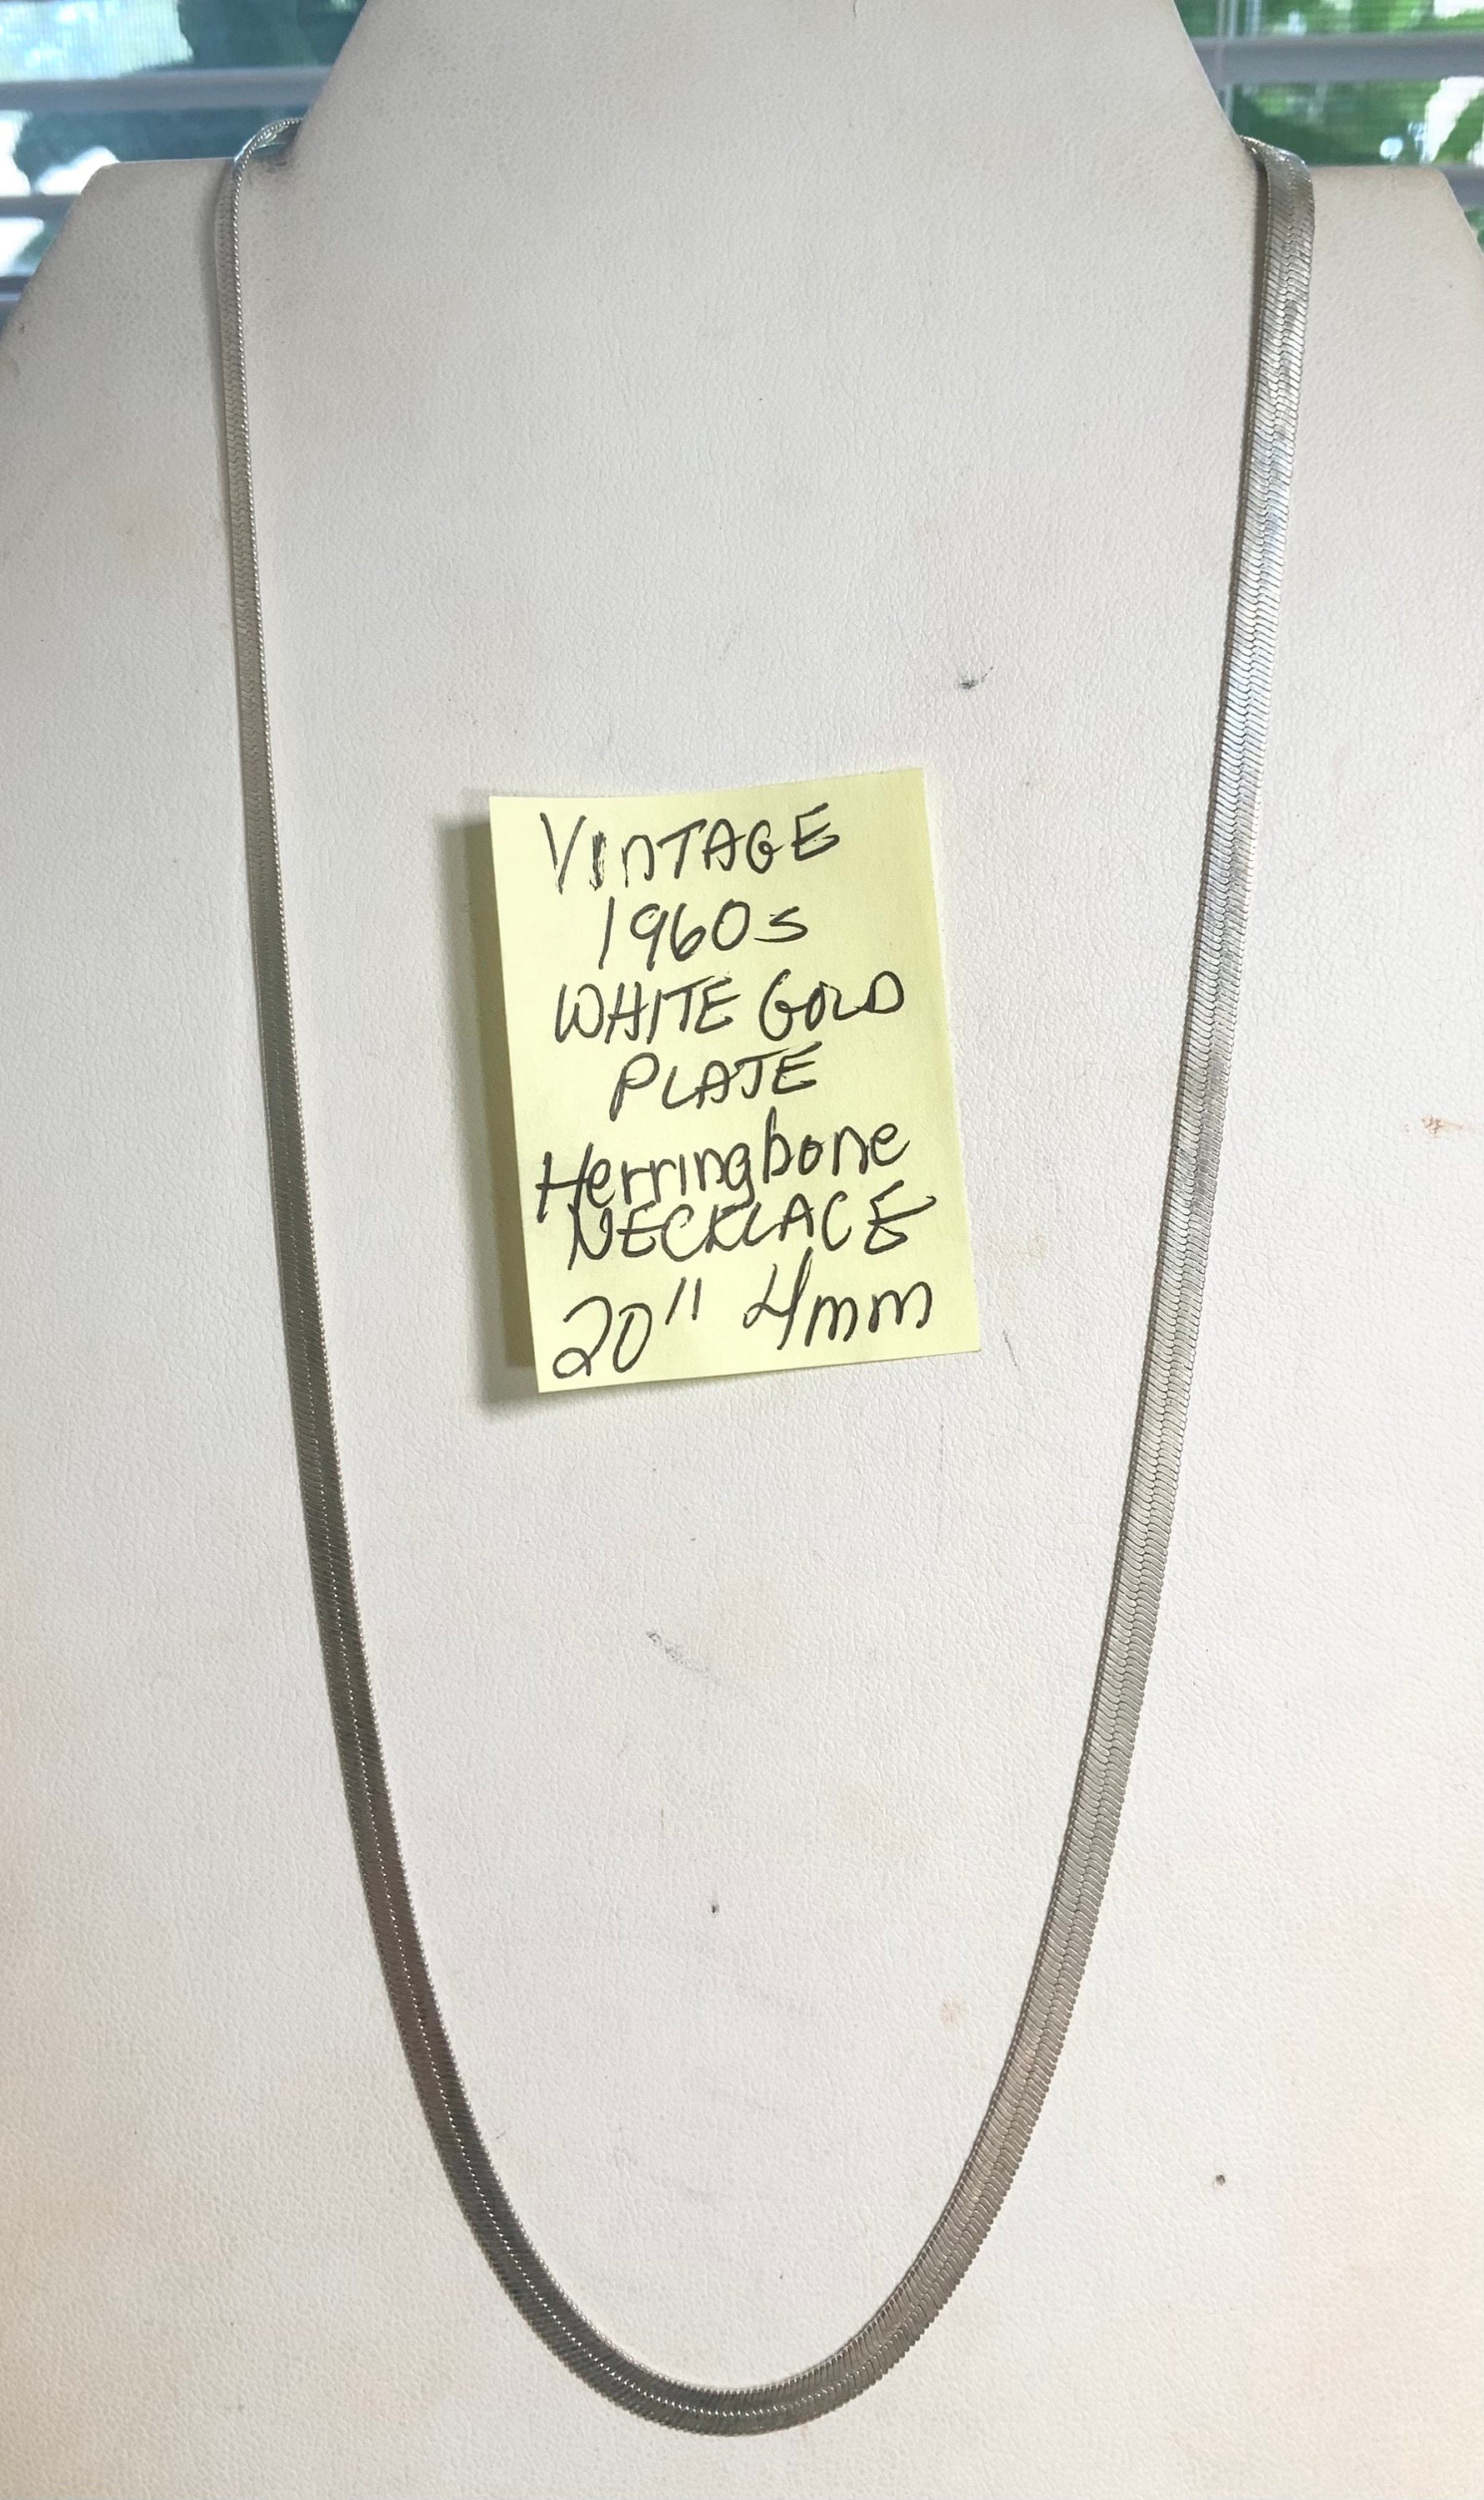 VInTAGE
1960s
WHITE GOLD
PLATE
Herringbone
NECKLACE
20" 4mm